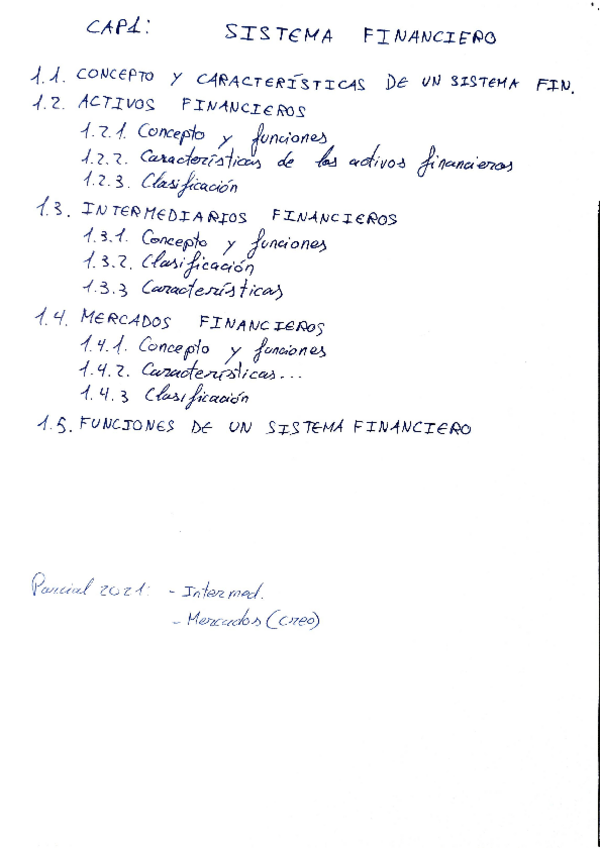 CAP1: SISTEMA FINANCIERO
1.1. CONCEPTO Y CARACTERÍSTICAS DE UN SISTEMA FIN.
1.2. ACTIVOS FINANCIEROS
1.2.1. Concepto y funciones
1.2.2. Características de los activos financieros
1.2.3. Clasificación
1.3. INTERMEDIARIOS FINANCIEROS
1.3.1. Concepto y funciones
1.3.2. Clasificación
1.3.3 Características
1.4. MERCADOS FINANCIEROS
1.4.1. Concepto y funciones
1.4.2. Características...
1.4.3 Clasificación
1.5. FUNCIONES DE UN SISTEMA FINANCIERO
Parcial 2021: - Intermed.
- Mercados (creo)